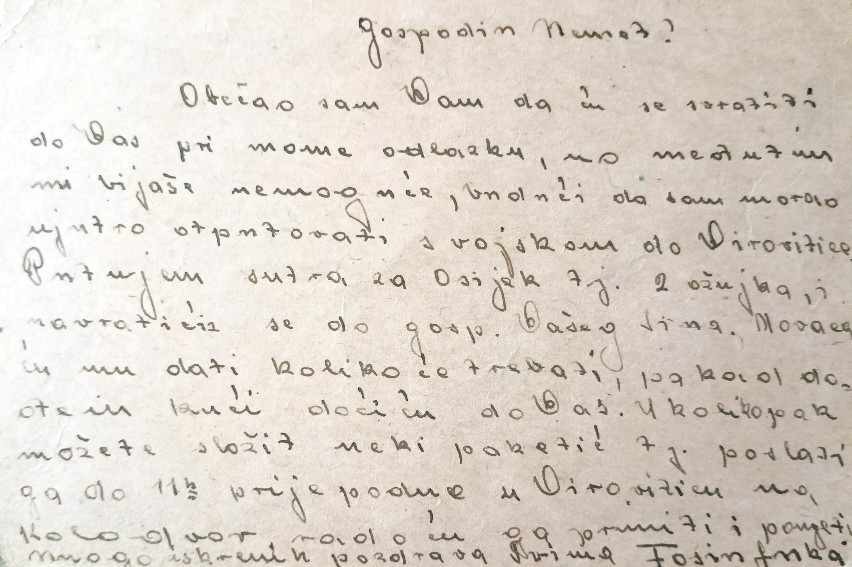 Gospodin Nemet?
Obećao sam Vam da ću se svratiti
do Vas pri mome odlazku, no međutim
mi bijaše nemoguće, budući da sam morao
ujutro otputovati s vojskom do Virovitice,
Putujem sutra za Osijek tj. 2 ožujka, i
navratiću se do gosp. Vašeg sina. Novaca
ću mu dati koliko će trebati, pa kad do-
kući doći ću do Vas. Ukoliko pak
možete složit neki paketić tj. poslati
ga do 11h prije podne u Viroviticu na
kolodvor, rado ću ga primiti i ponijeti
mnogo iskrenih pozdrava Svima